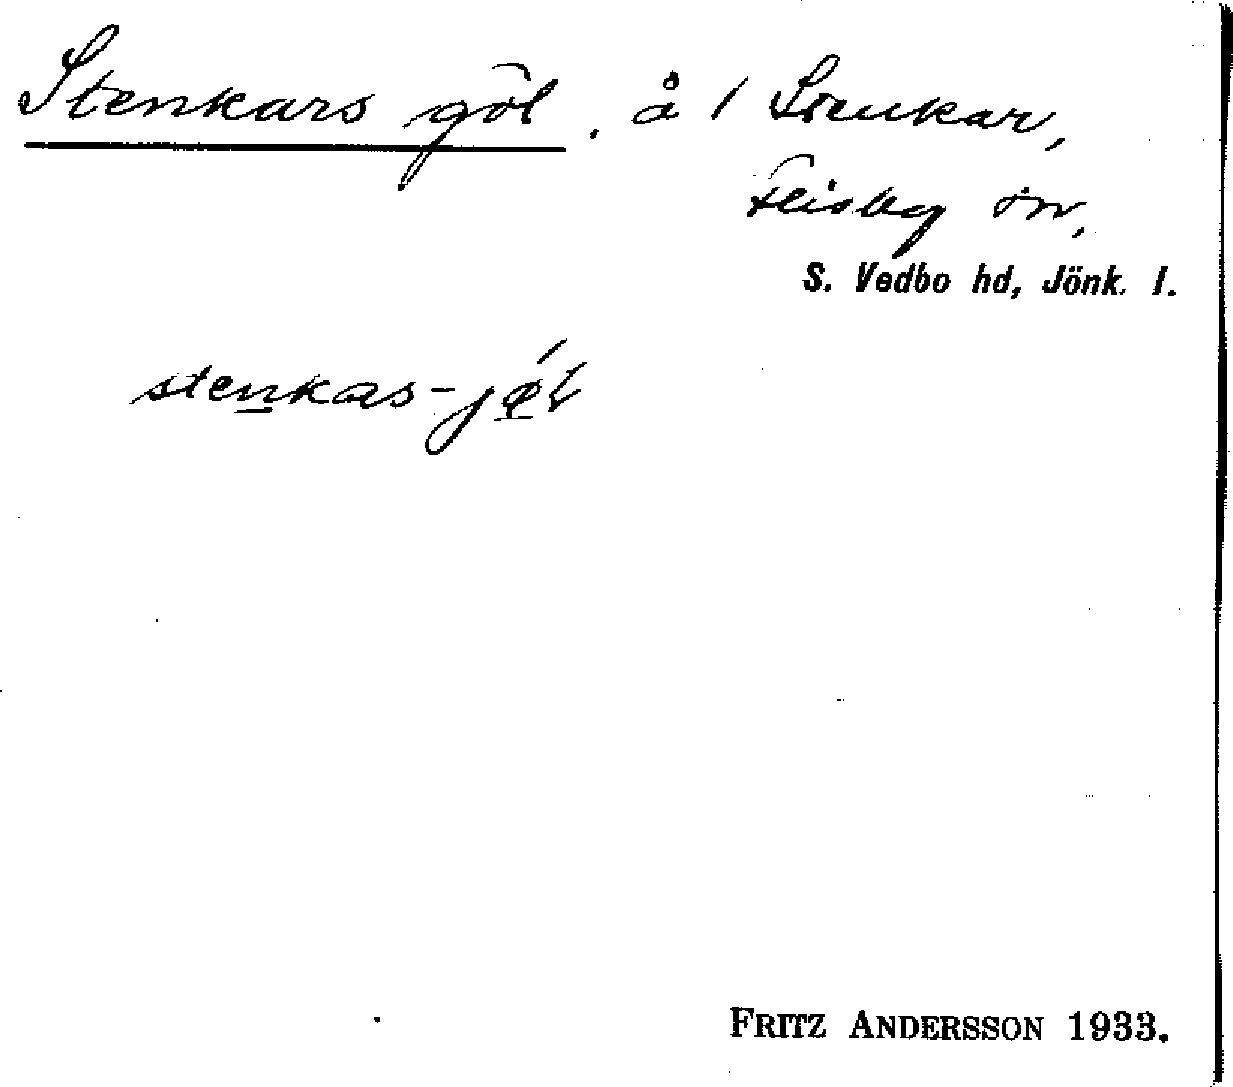 Stenkars göl. å 1 Stenkar,
Flisby sn,
S. Vedbo hd, Jönk. l.
stenkas-jøl
FRITZ ANDERSSON 1933.